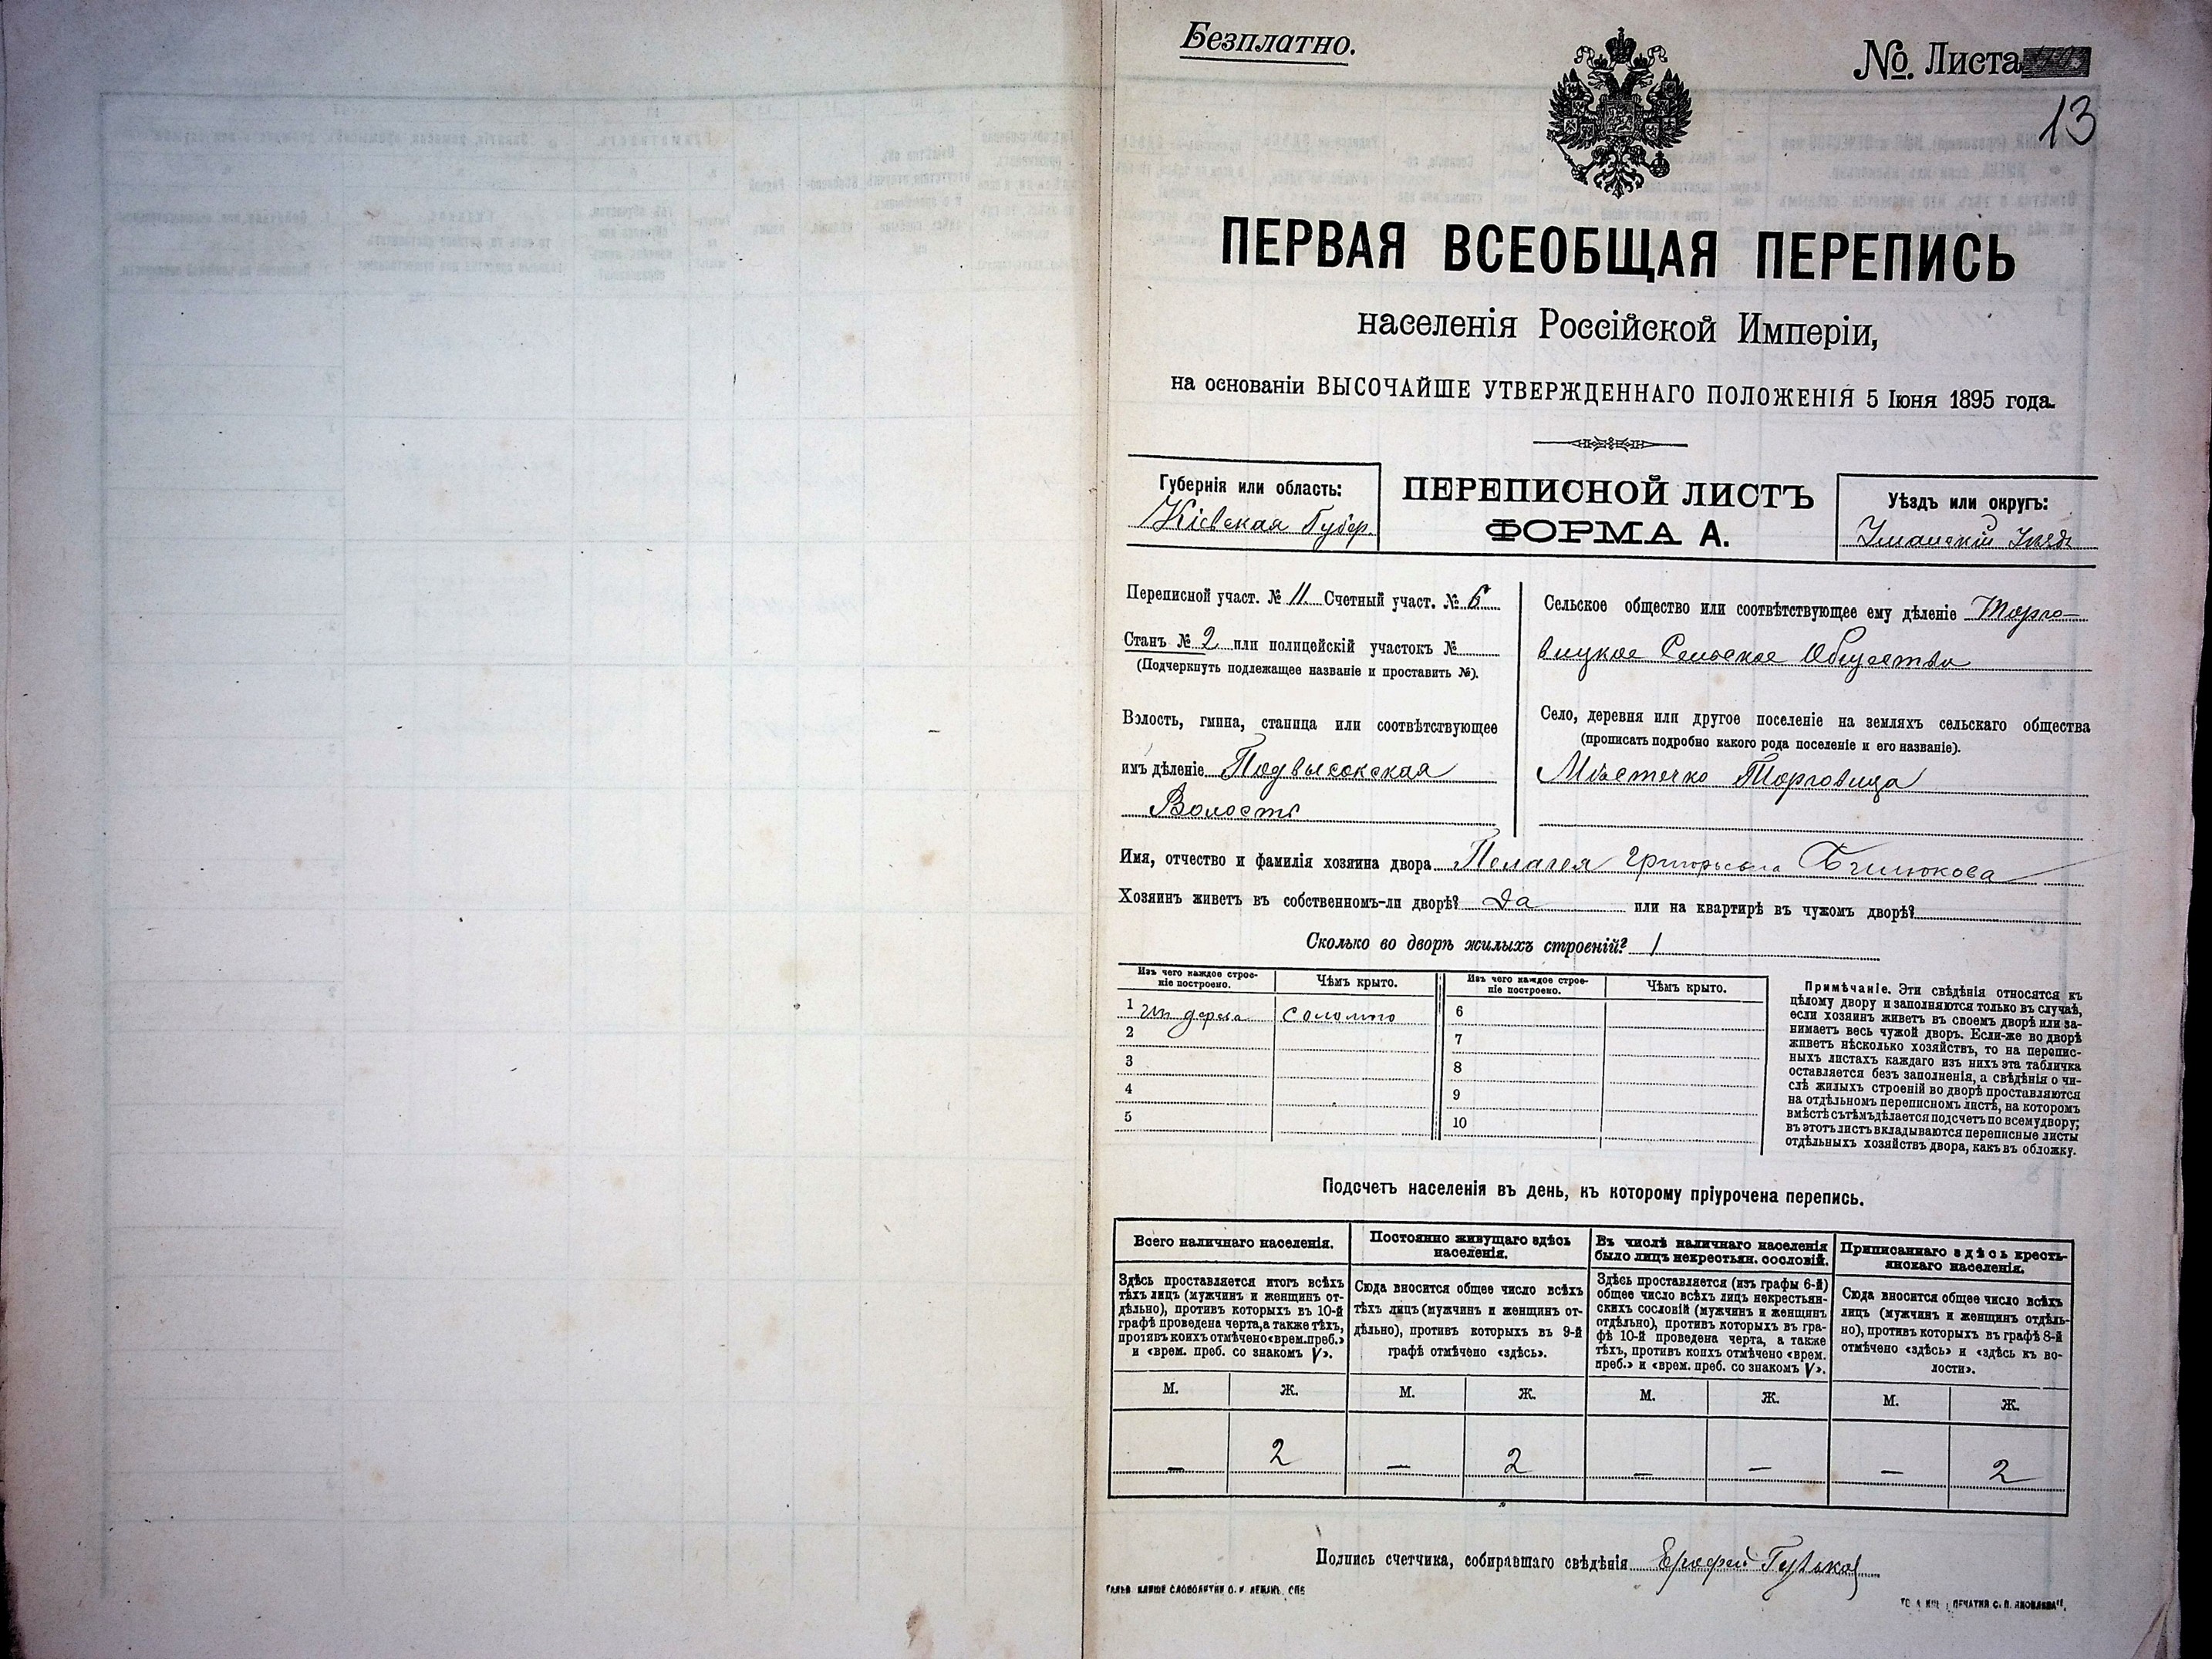 Безплатно.
№ Листа
13
ПЕРВАЯ ВСЕОБЩАЯ ПЕРЕПИСЬ
населенія Россійской Имперіи,
на основаніи ВЫСОЧАЙШЕ УТВЕРЖДЕННАГО ПОЛОЖЕНІЯ 5 Іюня 1895 года.
Губернія или область:
Кіевская Губер.
ПЕРЕПИСНОЙ ЛИСТЪ
ФОРМА А.
Уѣздъ или округъ:
Уманскій Уѣздъ
Переписной участ. № 11 Счетный участ. № 6
Станъ № 2 или полицейскій участокъ №
(Подчеркнуть подлежащее названіе и проставить №).
Волость, гмина, станица или соотвѣтствующее
имъ дѣленіе Подвысокская
Волость
Сельское общество или соотвѣтствующее ему дѣленіе Торго-
вицкое Сельское Общество
Село, деревня или другое поселеніе на земляхъ сельскаго общества
(прописать подробно какого рода поселеніе и его названіе).
Мѣстечко Торговица
Имя, отчество и фамилія хозяина двора Пелагея Григорьева
Хозяинъ живетъ въ собственномъ-ли дворѣ? Да или на квартирѣ въ чужомъ дворѣ?
Сколько во дворѣ жилыхъ строеній? 1
Изъ чего каждое строе-
ніе построено.
Чѣмъ крыто.
Изъ чего каждое строе-
ніе построено.
Чѣмъ крыто.
1 Из дерева Соломою
2
3
4
5
6
7
8
9
10
Примѣчаніе. Эти свѣдѣнія относятся къ
цѣлому двору и заполняются только въ случаѣ,
если хозяинъ живетъ въ своемъ дворѣ или за-
нимаетъ весь чужой дворъ. Если-же во дворѣ
живетъ нѣсколько хозяйствъ, то на перепис-
ныхъ листахъ каждаго изъ нихъ эта табличка
оставляется безъ заполненія, а свѣдѣнія о чи-
слѣ жилыхъ строеній во дворѣ проставляются
на отдѣльномъ переписномъ листѣ, на которомъ
вмѣстѣ съ тѣмъ дѣлается подсчетъ по всему двору;
въ этотъ листъ вкладываются переписные листы
отдѣльныхъ хозяйствъ двора, какъ въ обложку.
Подсчетъ населенія въ день, къ которому пріурочена перепись.
Всего наличнаго населенія.
Здѣсь проставляется итогъ всѣхъ
тѣхъ лицъ (мужчинъ и женщинъ от-
дѣльно), противъ которыхъ въ 10-й
графѣ проведена черта, а также тѣхъ,
противъ коихъ отмѣчено «врем. преб.»
и «врем. преб. со знакомъ V».
Постоянно живущаго здѣсь
населенія.
Сюда вносится общее число всѣхъ
тѣхъ лицъ (мужчинъ и женщинъ от-
дѣльно), противъ которыхъ въ 9-й
графѣ отмѣчено «здѣсь».
Въ числѣ наличнаго населенія
было лицъ некрестьян. сословій.
Здѣсь проставляется (изъ графы 6-й)
общее число всѣхъ лицъ некрестьян-
скихъ сословій (мужчинъ и женщинъ
отдѣльно), противъ которыхъ въ гра-
фѣ 10-й проведена черта, а также
тѣхъ, противъ коихъ отмѣчено «врем.
преб.» и «врем. преб. со знакомъ V».
Приписаннаго здѣсь кресть-
янскаго населенія.
Сюда вносится общее число всѣхъ
лицъ (мужчинъ и женщинъ отдѣль-
но), противъ которыхъ въ графѣ 8-й
отмѣчено «здѣсь» и «здѣсь къ во-
лости».
М. Ж. М. Ж. М. Ж. М. Ж.
— 2 — 2 — — — 2
Подпись счетчика, собиравшаго свѣдѣнія Ерофей